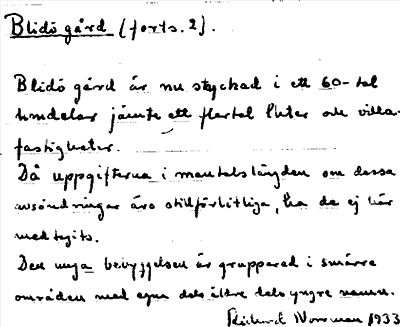 Blidö gård (forts. 2).
Blidö gård är nu styckad i ett 60-tal
lmdelar jämte ett flertal luter och villa-
fastigheter.
Då uppgifterna i mantalslängden om dessa
avsöndringar äro otillförlitliga, ha de ej här
medtagits.
Den nya bebyggelsen är grupperad i smärre
områden med egna dels äldre dels yngre namn.
Rickard Norrman 1933